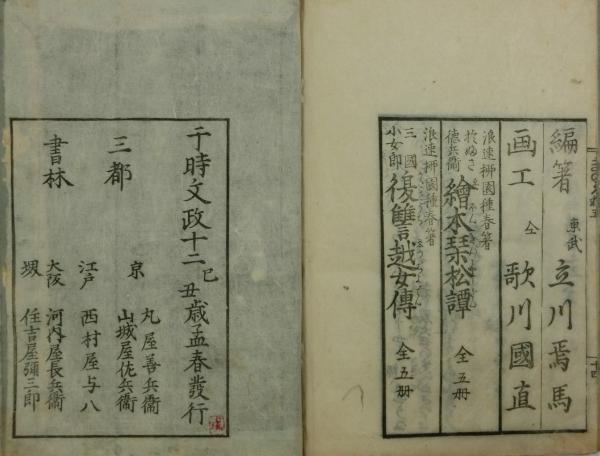 編著 東武 立川焉馬
画工 仝 歌川國直
浪速 栁園種春著
德兵衞
繪本琹松譚 全五册
浪速栁園種春著
三國
小女郎
復讐越女傳 全五册
十四
于時文政十二己丑歳孟春發行
三都
書林
京 丸屋善兵衞
山城屋佐兵衞
江戸 西村屋与八
大阪 河内屋長兵衞
堺 住吉屋彌三郎